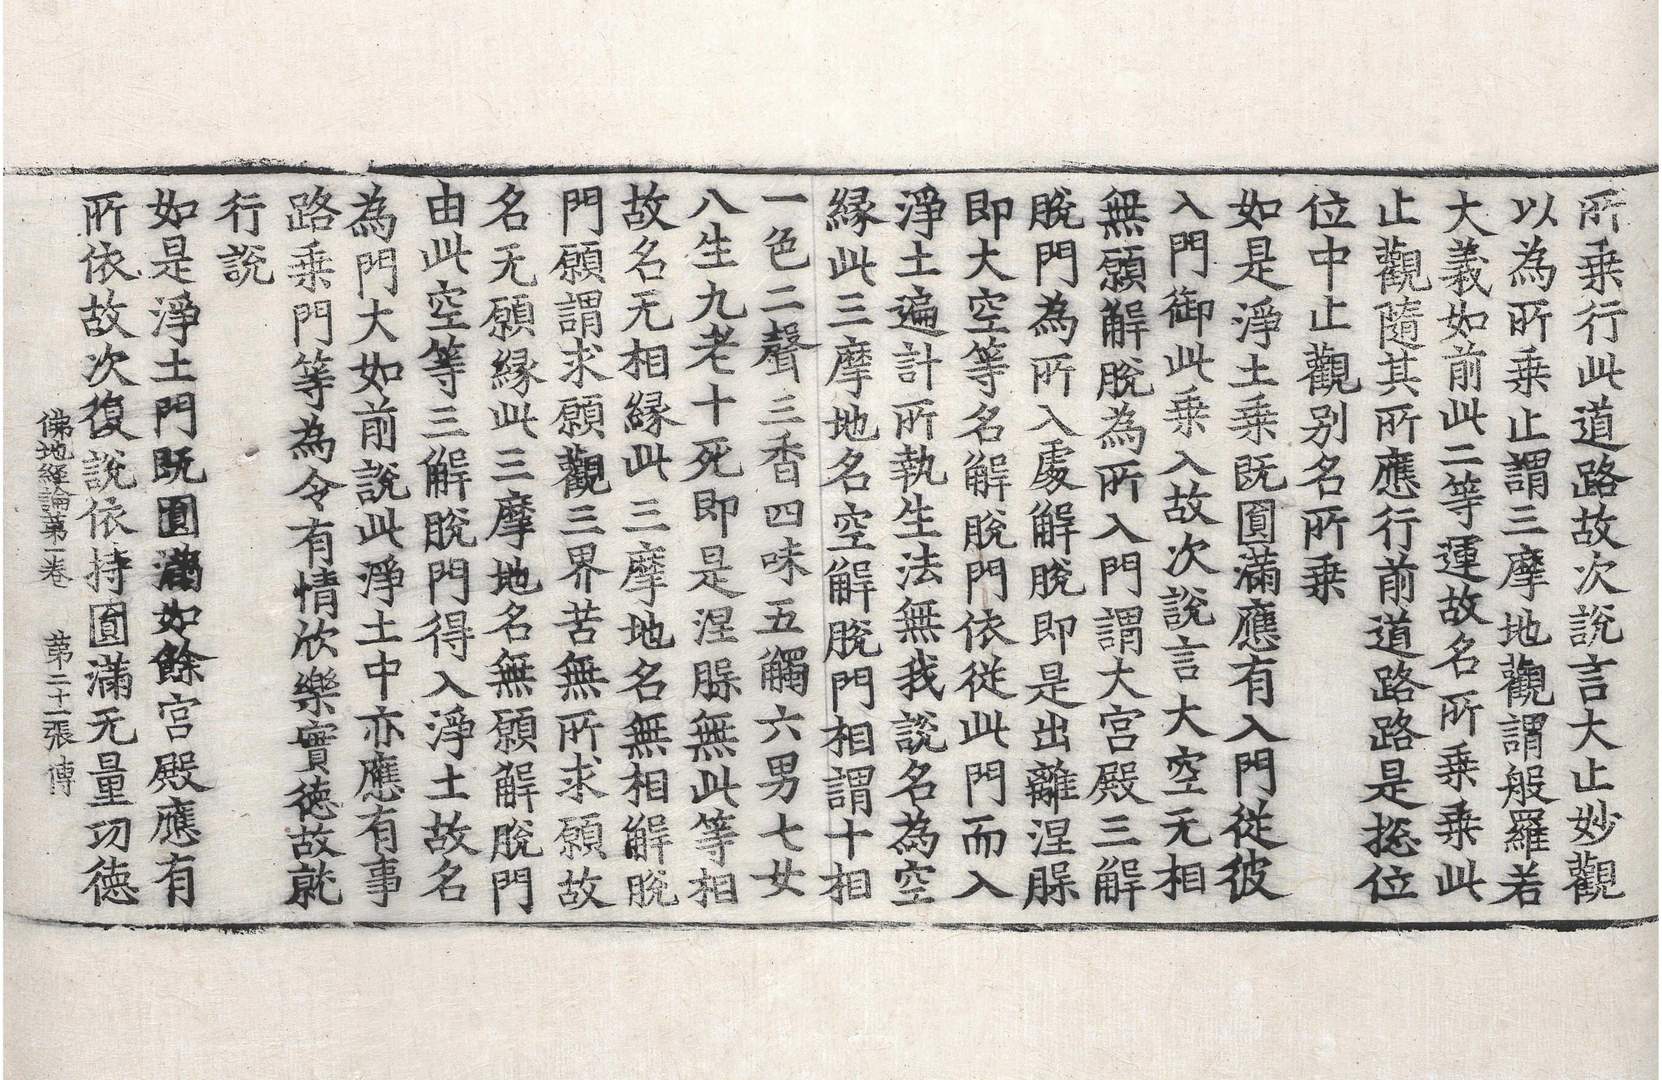 所乗行此道路故次說言大止妙觀
以為所乗止謂三摩地觀謂般羅若
大義如前此二等運故名所乗乗此
止觀隨其所應行前道路路是捴位
位中止觀别名所乗
如是淨土乗既圎滿應有入門従彼
入門御此乗入故次說言大空无相
無願解脫為所入門謂大宫殿三解
脫門為所入處解脫即是出離涅𣵀
即大空等名解脫門依従此門而入
淨土遍計所執生法無我說名為空
縁此三摩地名空解脫門相謂十相
一色二聲三香四味五觸六男七女
八生九老十死即是涅𣵀無此等相
故名无相縁此三摩地名無相解脫
門願謂求願觀三界苦無所求願故
名无願縁此三摩地名無願解脫門
由此空等三解脫門得入淨土故名
為門大如前說此淨土中亦應有事
路乗門等為令有情欣樂實徳故就
行說
如是淨土門既圎滿如餘宫殿應有
所依故次復說依持圎滿无量功徳
佛地經論苐一卷 苐二十一張 傳